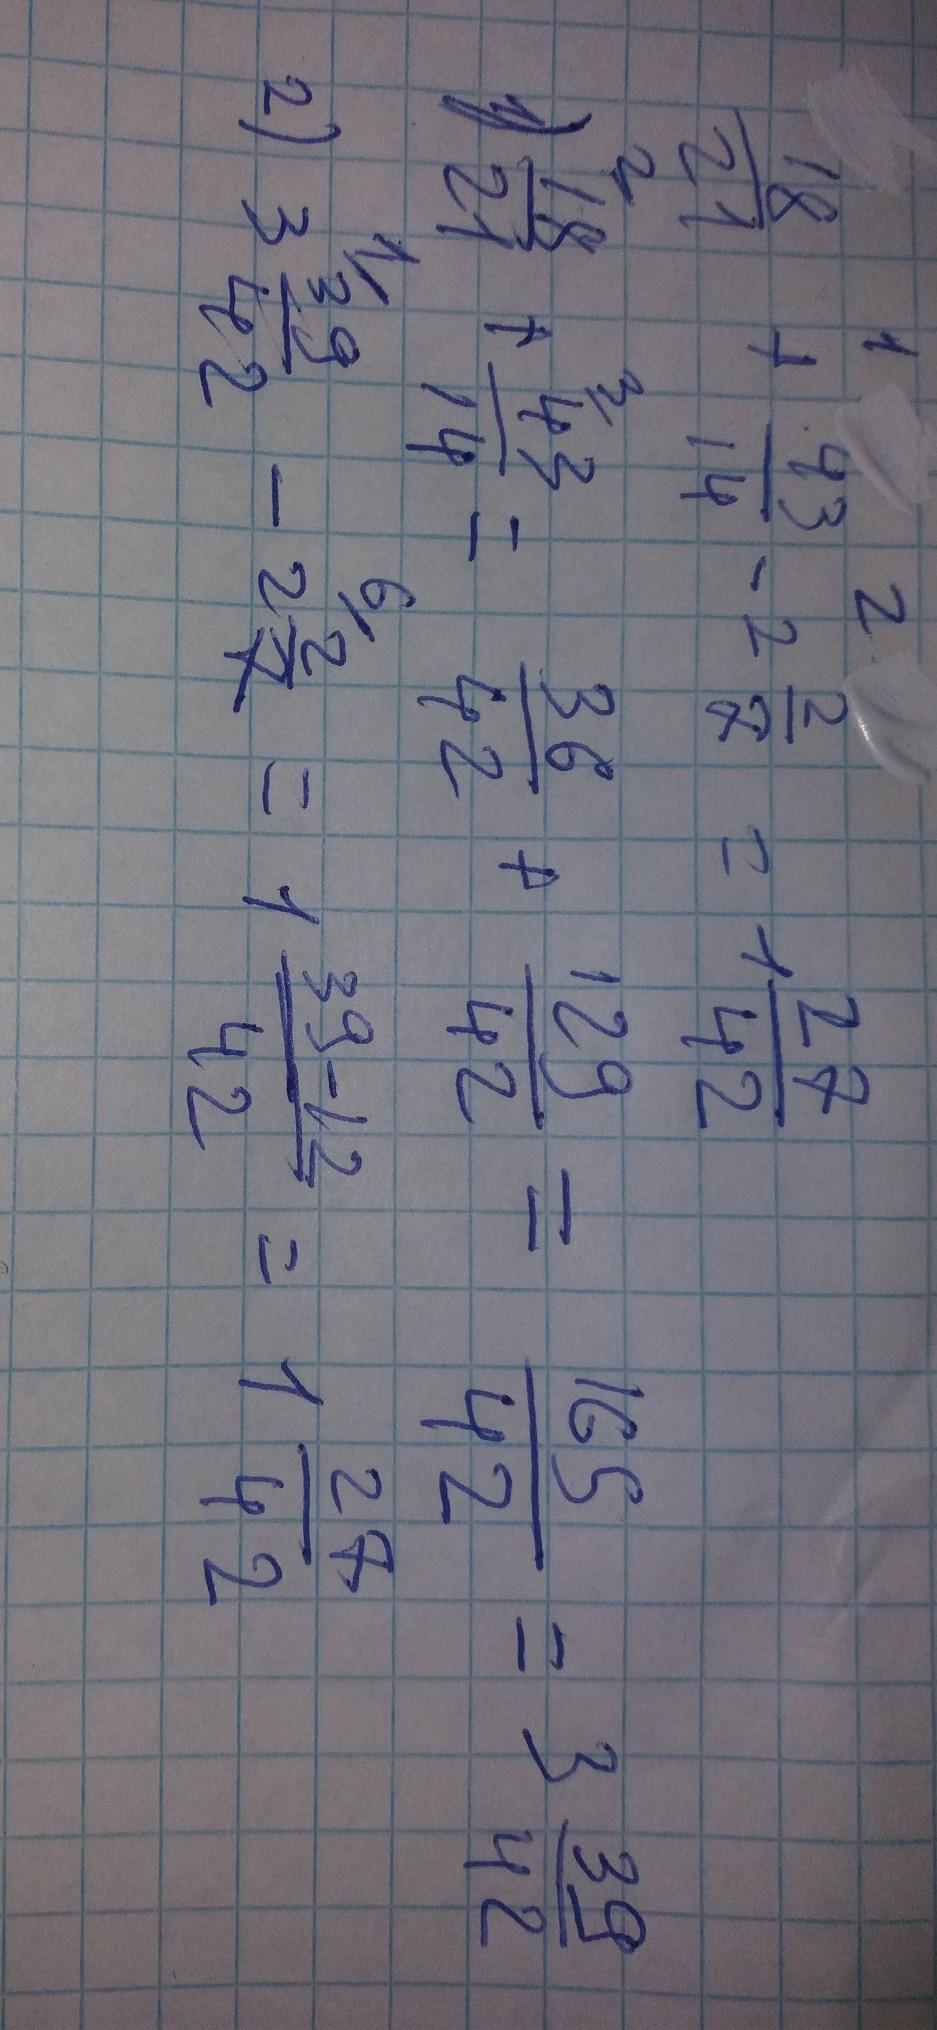 1 2
18/21 + 43/14 - 2 2/7 = 1 27/42
1) 18/21 ² + 43/14 ³ = 36/42 + 129/42 = 165/42 = 3 39/42
2) 3 39/42 ¹ - 2 2/7 ⁶ = 1 39-12/42 = 1 27/42